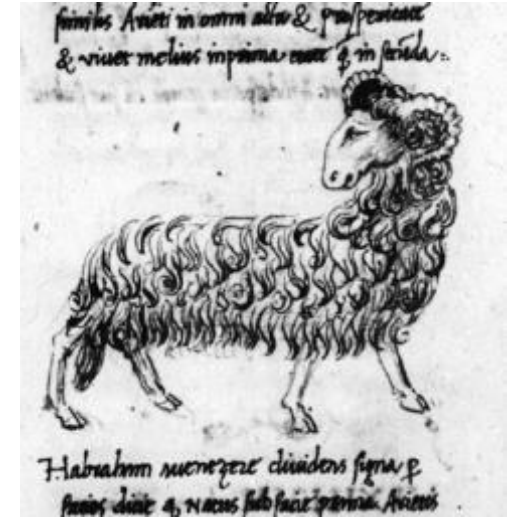 similis Arieti in omni alia & prosperitate
& viuet melius in prima q in secũda:
Habrahm auenezere diuidens signa p
facies dicit q Natus sub facie prima Arietis